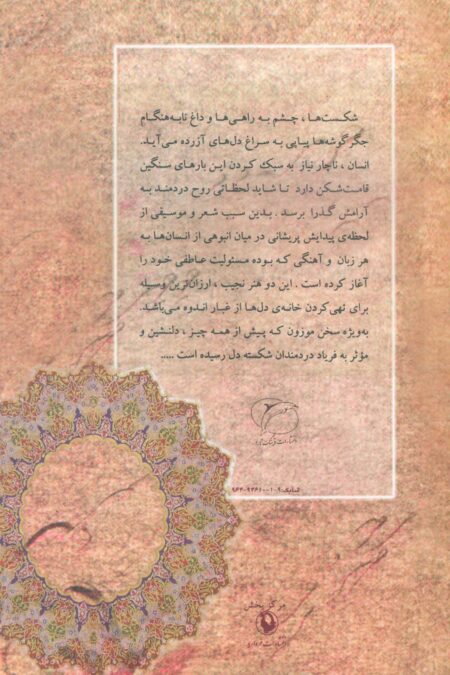 شکست‌ها ، چشم به راهی‌ها و داغ نابه‌هنگام
جگرگوشه‌ها پیاپی به سراغ دل‌های آزرده می‌آید.
انسان ، ناچار نیاز به سبک کردن این بارهای سنگین
قامت‌شکن دارد تا شاید لحظاتی روح دردمند به
آرامش گذرا برسد . بدین سبب شعر و موسیقی از
لحظه‌ی پیدایش پریشانی در میان انبوهی از انسان‌ها به
هر زبان و آهنگی که بوده مسئولیت عاطفی خود را
آغاز کرده است . این دو هنر نجیب ، ارزان‌ترین وسیله
برای تهی کردن خانه‌ی دل‌ها از غبار اندوه می‌باشد.
به‌ویژه سخن موزون که پیش از همه چیز ، دلنشین و
مؤثر به فریاد دردمندان شکسته دل رسیده است .....
مرکز پخش